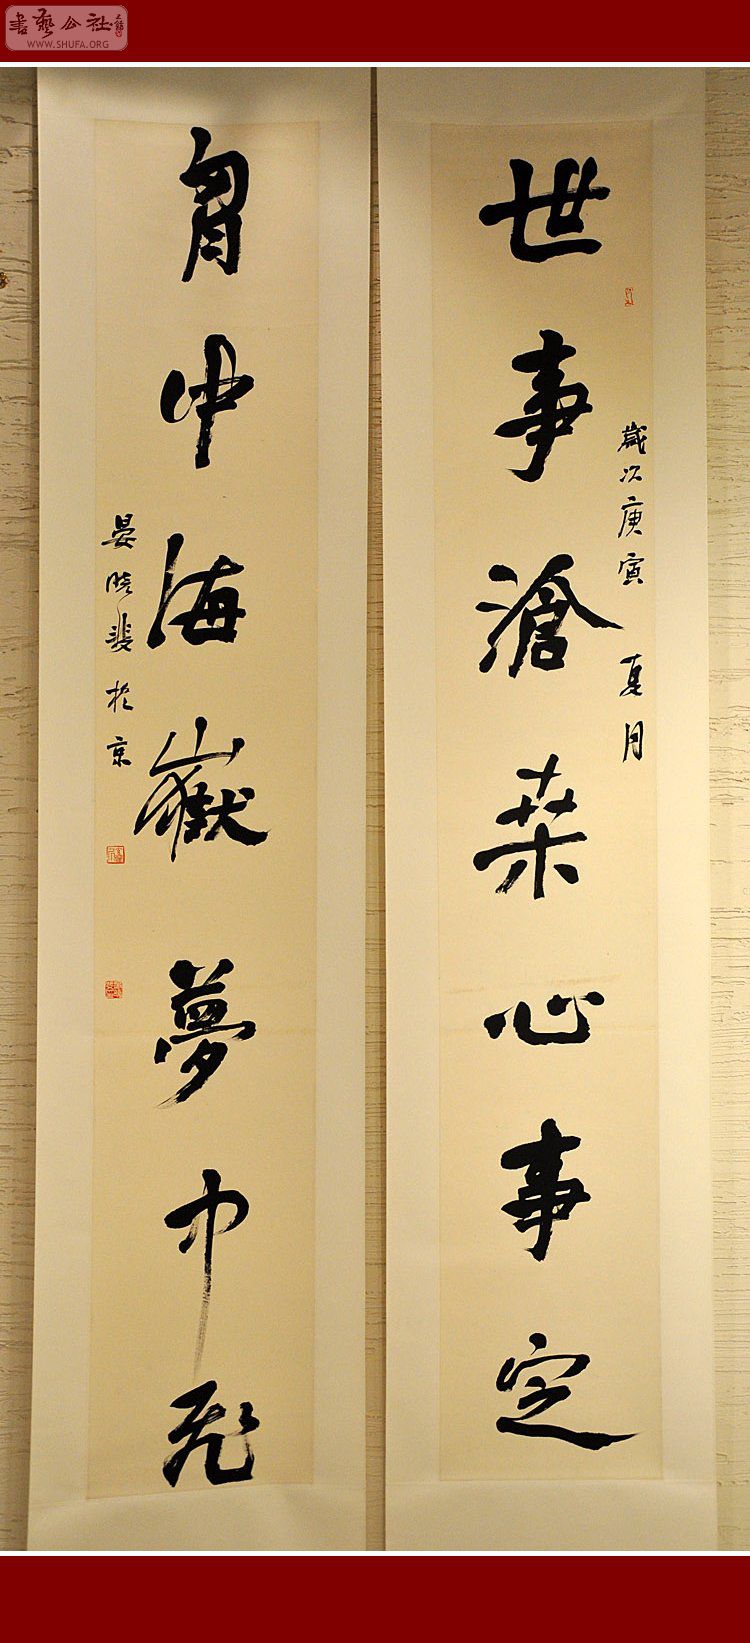 書藝公社
WWW.SHUFA.ORG
世事滄桒心事定
歲次庚寅 夏月
胷中海嶽夢中飛
晏曉斐於京